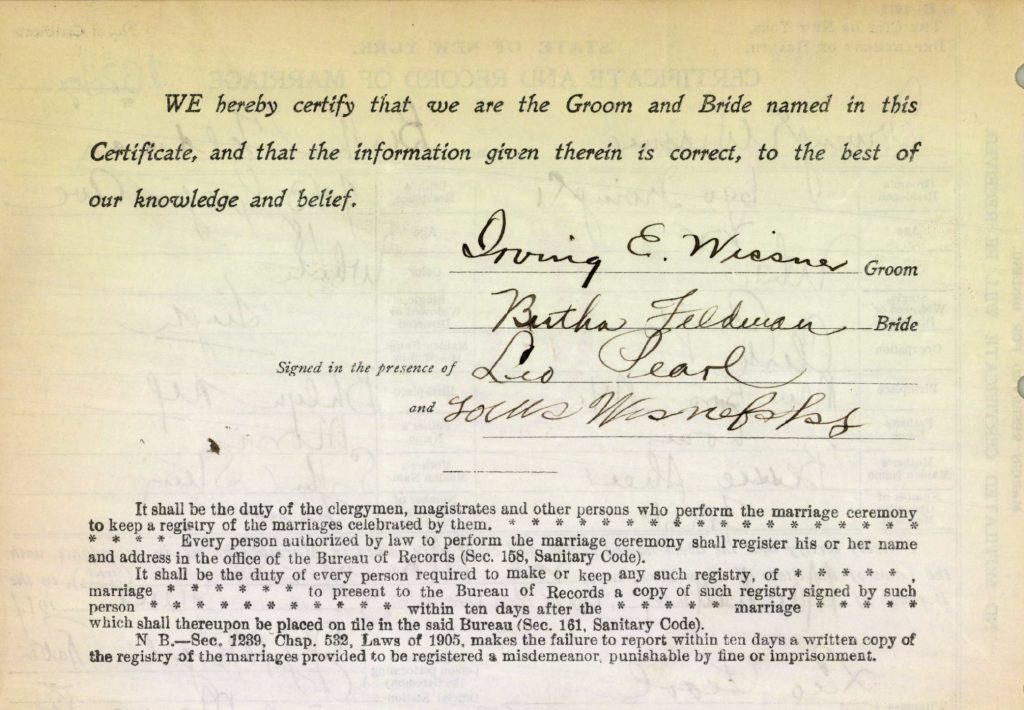 WE hereby certify that we are the Groom and Bride named in this
Certificate, and that the information given therein is correct, to the best of
our knowledge and belief.
Irving E. Wissner Groom
Bertha Feldman Bride
Signed in the presence of Leo Pearl
and Louis
It shall be the duty of the clergymen, magistrates and other persons who perform the marriage ceremony
to keep a registry of the marriages celebrated by them. * * * * * * * * * * * * * * * * *
* * * * Every person authorized by law to perform the marriage ceremony shall register his or her name
and address in the office of the Bureau of Records (Sec. 158, Sanitary Code).
It shall be the duty of every person required to make or keep any such registry, of * * * * * ,
marriage * * * * * * to present to the Bureau of Records a copy of such registry signed by such
person * * * * * * * * * * * within ten days after the * * * * * marriage * * * * *
which shall thereupon be placed on file in the said Bureau (Sec. 161, Sanitary Code).
N B.—Sec. 1239, Chap. 532, Laws of 1905, makes the failure to report within ten days a written copy of
the registry of the marriages provided to be registered a misdemeanor, punishable by fine or imprisonment.